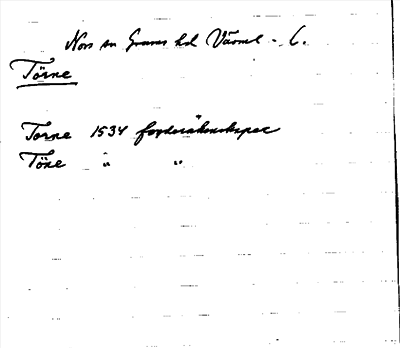 Nors sn Grums hd Värml. - l.
Törne
Torne 1534 fogderäkenskaper
Töne " "